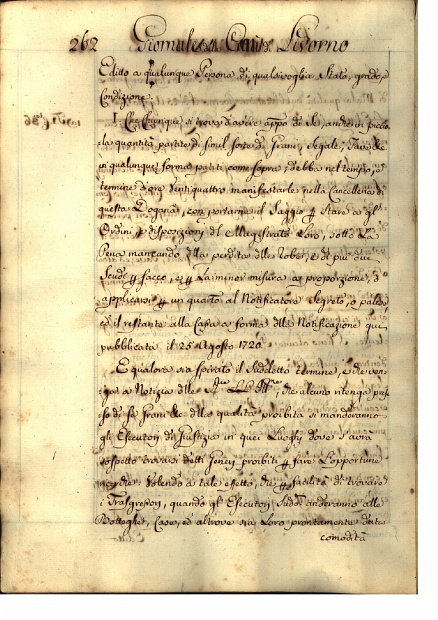 262 Giornale Livorno
Editto a qualunque Persona di qualsivoglia Stato, grado, e
Condizione.
I. Che chiunque si trova d'avere appo di Se, anche in picco
la quantità partite di simil sorte di Grani, Segale,
in qualunque forma patiti come sopra, debba nel tempo, e
termine d'ore Ventiquattro manifestarle nella Cancelleria di
questa Dogana, con portarne il Saggio p Stare a gl'
Ordini, e disposizioni del Magistrato Loro, sotto La
Pena mancando della perdita delle Robe, e di più due
Scudi p sacco, e p La minor misura a proporzione, d'
applicarsi p un quarto al Notificatore Segreto, o palese
ed il restante alla Cassa a forma della Notificazione qui
pubblicata il 25 Agosto 1720
E qualora sia spirato il Suddetto termine, e che ven
ga a Notizia delle che alcuno ritenga pres
so di se Grani &c della qualità proibita si manderanno
gli Esecutori di Giustizia in quei Luoghi dove s'avrà
sospetto trovarsi detti Generi proibiti p fare L'opportune
Volendo a tale effetto, che p facilità di trovare
i Trasgressori, quando gl' Esecutori Sudd. anderanno alle
Botteghe, Case, ed altrove sia Loro prontamente data
comodità